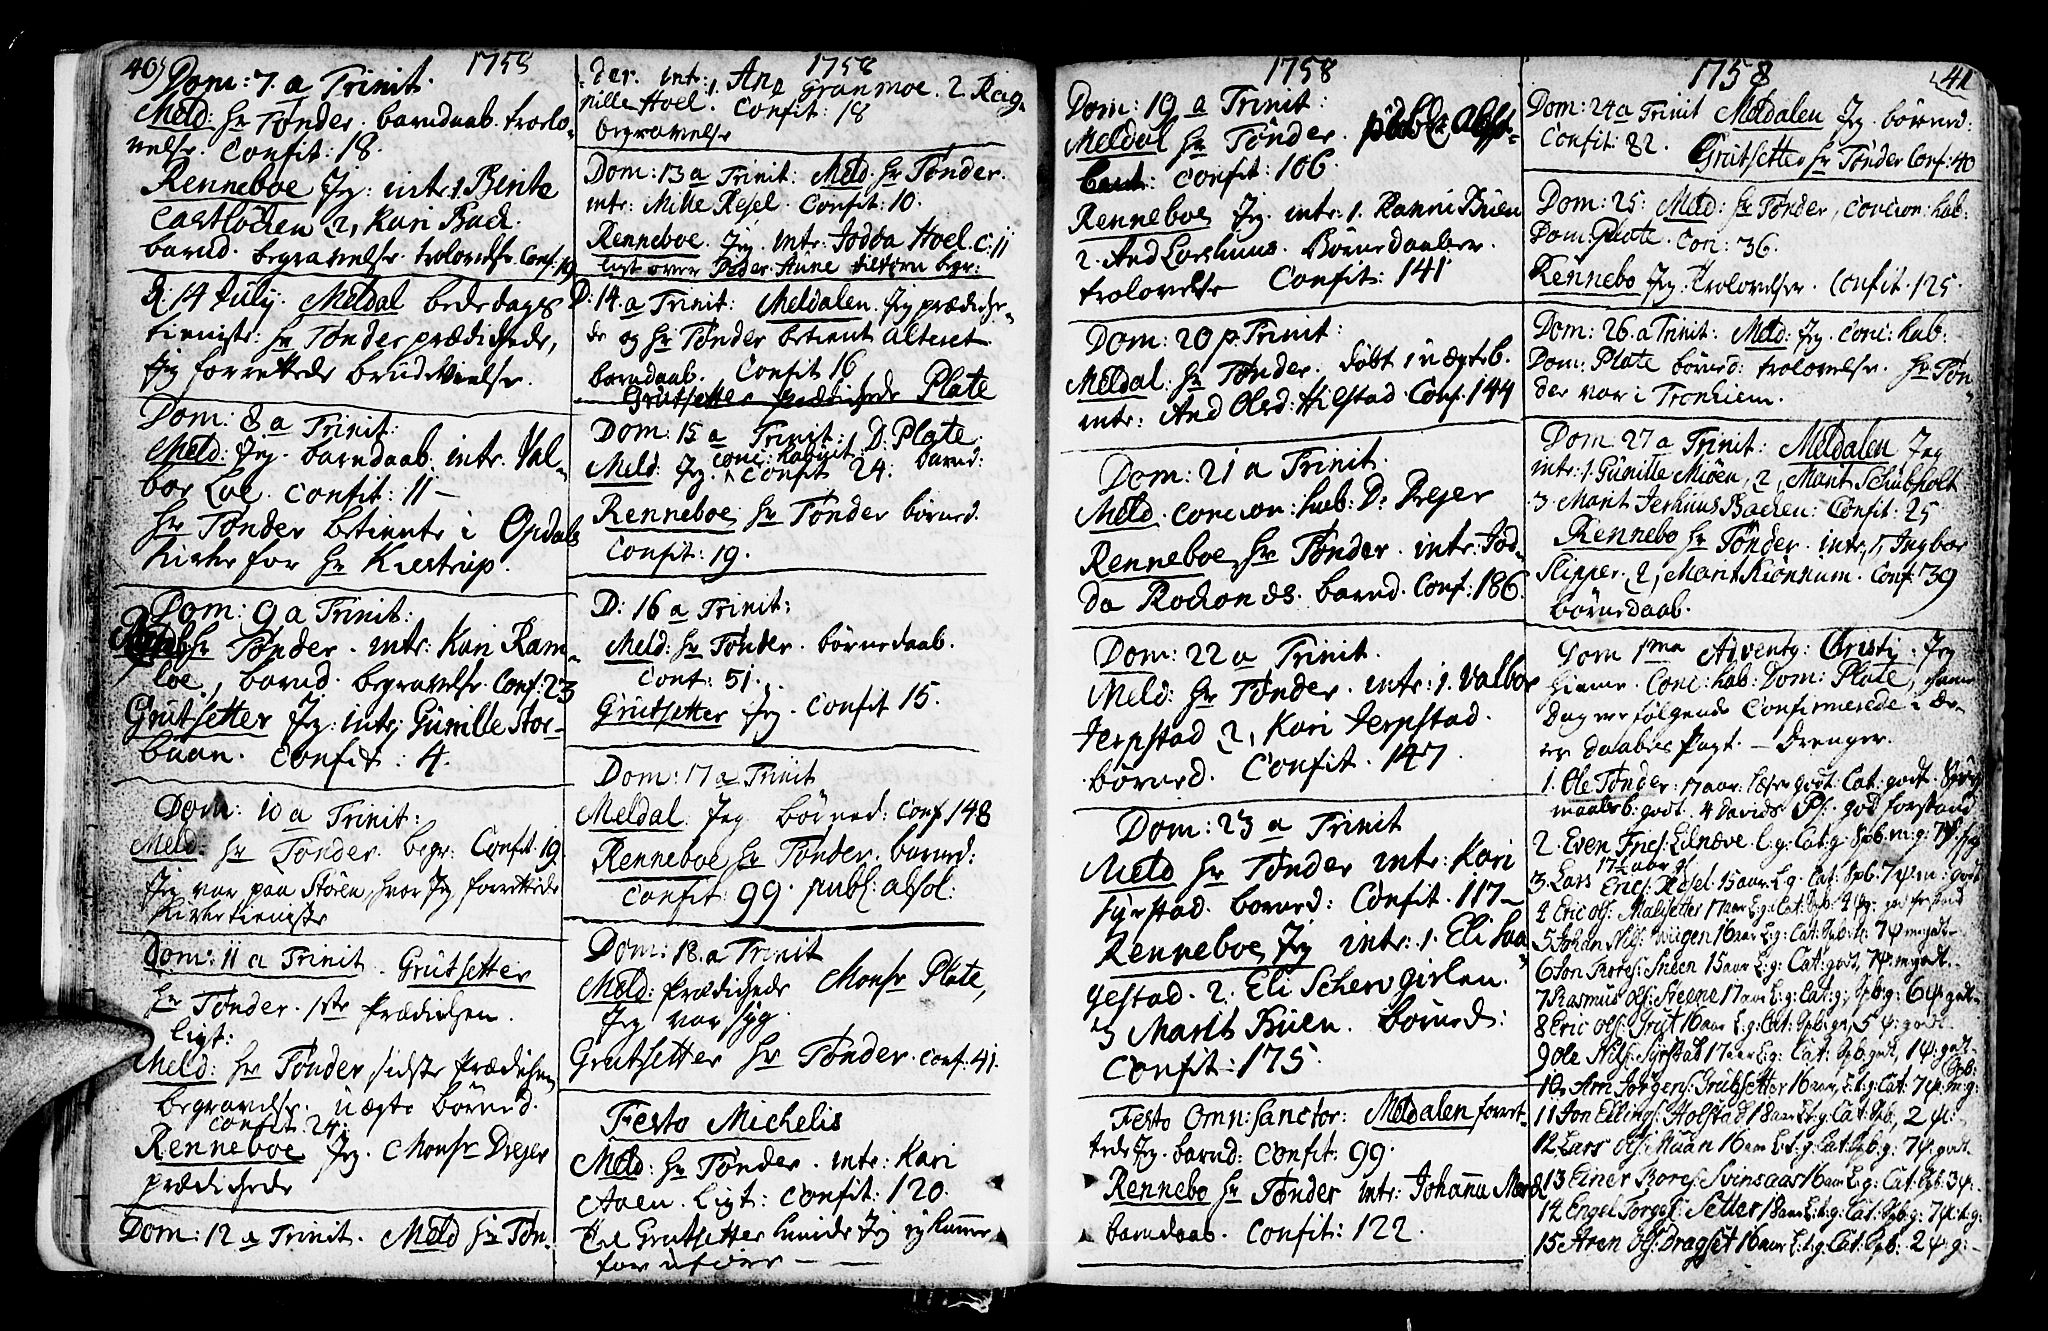 40
1758
Dom: 7. a Trinit.
Meld: Hr Tønder. barndaab. trolo-
velse. Confit: 18.
Renneboe Jeg: intr: 1. Berite
Castlöcken 2, Kari Back.
barnd. begravelse. trolovelse. Conf: 19
D: 14 July. Meldal bededags
tieniste: Hr Tønder prædichede,
Jeg forrettede brudevielse.
Dom: 8 a Trinit:
Meld: Jeg. barndaab. intr. Val-
bor Loe. Confit: 11 -
Hr Tønder betiente i Opdals
Kirke for Hr Krestrup.
Dom: 9 a Trinit:
Meld: Hr Tønder. intr: Kari Ram-
loe, barnd. begravelse. Conf: 23
Grütsetter Jeg: intr: Gunille Stor-
buan. Confit: 4.
Dom: 10 a Trinit:
Meld: Hr Tønder. begr: Confit: 19.
Jeg var paa Stören, hvor Jeg forrettede
Kirketieniste
Dom: 11 a Trinit. Grütsetter
Hr Tønder. 1ste Prædichen.
Ligt:
Meld: Hr Tønder, sidste Prædichen
begravelse. uægte börned.
Confit 24:
Renneboe Jeg. Monsr Dreier
prædichede
Dom: 12 a Trinit. Meld Hr Tøn-
1758
der. intr: 1. Ane Granmoe. 2. Rag-
nille Hoel. Confit: 18
begravelse
Dom: 13 a Trinit: Meld: Hr Tønder.
intr: Mille Resel. Confit: 10.
Renneboe. Jeg. Intr: Jodda Hoel. C: 11
ligt over Peder Aune begr:
D: 14. a Trinit: Meldalen. Jeg prædiche-
de og Hr Tønder betient Alteret
barndaab. Confit 16
Grütsetter prædichede Plate
Dom: 15 a Trinit: D: Plate
conc: habuit
Meld: Jeg. Confit 24. barnd:
Renneboe: Hr Tønder börned.
Confit: 19.
D: 16 a Trinit:
Meld: Hr Tønder. börnedaab.
Conf: 51.
Grütsetter Jeg. Confit 15.
Dom: 17 a Trinit
Meldal. Jeg börned: Conf 148
Renneboe Hr Tønder. barnd:
Confit: 99. publ: absol:
Dom: 18. a Trinit
Meld: Prædichede Monsr Plate,
Jeg var syg.
Grutsetter Hr Tønder. Conf: 41.
Festo Michelis
Meld: Hr Tønder. intr: Kari
Aven. Ligt: Confit: 120.
Til Grutsetter kunde Jeg ey komme
for uföre - -
1758
Dom: 19 a Trinit:
Meldal Hr Tønder.
Confit: 106.
Renneboe Jeg. intr: 1. Ranni Büen
2. And Loshuus. Börnedaaben.
trolovelse Confit: 141
Dom: 20 p. Trinit:
Meldal: Hr Tønder. döbt 1 uægteb.
intr: And Olsd: Hilstad. Conf: 144
Dom: 21 a Trinit.
Meld. concion: hab: D: Dreyer
Renneboe, Hr Tønder. intr: Jod-
da Rochones. barnd. Conf: 186.
Dom: 22 a Trinit.
Meld: Hr Tønder. intr: 1. Valbor
Jerpstad 2, Kari Jerpstad.
börned. Confit. 147.
Dom: 23 a Trinit
Meld Hr Tønder intr: Kari
Syrstad. barnd: Confit. 117-
Renneboe Jeg intr: 1. Eli Saa-
gestad. 2. Eli
3 Marit Büen. Börned:
Confit: 175.
Festo Omn: Sanctor: Meldalen forret-
tede Jeg. barnd: Confit: 99.
Rennebo Hr Tønder intr: Johanna
barndaab. Confit: 122.
1758
41
Dom: 24 a Trinit Meldalen Jeg. börned:
Confit: 82. Grütsetter Hr Tønder Conf: 40
Dom: 25: Meld: Hr Tønder, concion: hab:
Dom: Plate. Con: 36.
Rennebo Jeg. Trolovelse. Confit. 125.
Dom: 26. a Trinit. Meld: Jeg. Conc: hab:
Dom: Plate börned: trolovelse. Hr Tøn-
der var i Tronhiem.
Dom: 27 a Trinit: Meldalen Jeg
intr: 1. Gunille Mioen, 2, Marit Schubholt
3. Marit Jerhuus Bachen: Confit: 25
Rennebo Hr Tønder. intr: 1, Ingbor
Slipper. 2, Marit Kiönnum. Conf: 39
börnedaab.
Dom 1ma Adventg: Christi: Jeg
hieme. Conc: hab: Dom: Plate, samme
Dag ere fölgende Confirmerede i De-
res Daabes Pagt. - Drenger.
1. Ole Tønder: 17 aar: læser godt: Cat: godt. Spörs-
maalsb: godt. 4 Davids Ps: god forstand
2. Even Lilnæve L: g: Cat: g: Spb: m: g: 7ψ: 
17½ aar
3. Lars Eric: Resel 15 aar L: g. Cat: Spb. 7ψ m: godt
4 Eric Ols: Malisetter 17 aar L: g: Cat: Spb: 4 ψ: god forstand
5 Johan Nils: 16 aar L: g: Cat: Spb: g: 7ψ m: godt-
6 Jon Tores: Sneen 15 aar L: g: Cat: godt, 7ψ. m: godt.
7 Rasmus Ols: Steene 17 aar L: g: Cat: g: Spb: g: 6ψ: godt-
8 Eric Ols: Grut 16 aar L: g: Cat: Spb: g: 5 ψ: godt.
9 Ole Nils: Syrstad 17 aar L: g: Cat: Spb: godt, 1ψ: godt-
10, Arn Jörgens: Grütsetter 16 aar, L: g: Cat: Spb: 7ψ: m: g:
11 Jon Ellings: Holstad 18 aar L: g: Cat: Spb, 2 ψ:
12. Lars Ols: Muan 16 aar L: g: Cat: Spb: g: 7ψ: godt.
13 Einer Tores: Svinsaas 16 aar L: g: Cat: Spb: 3ψ:
14 Engel Torges: Setter 18 aar L: g: Cat: Spb: g: 7ψ: t: g:
15 Aren Ols: Dragset 16 aar L: g: Cat: Spb: 2 ψ: g: -